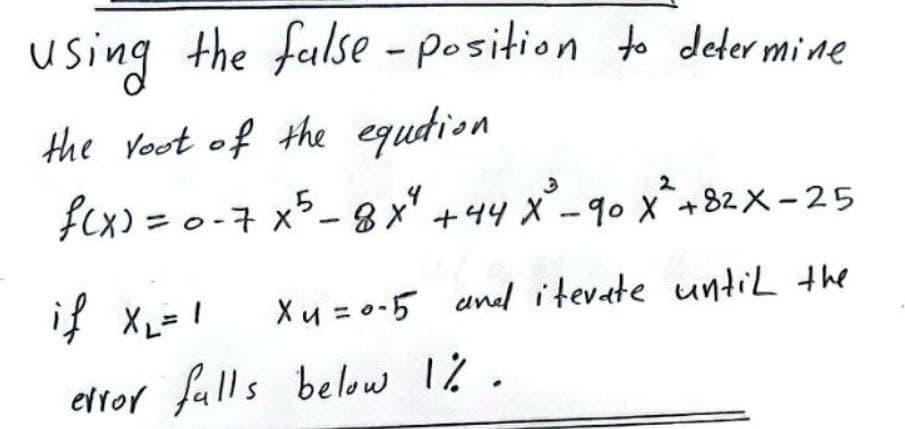 using the false-position to determine
the root of the equation
f(x) = 0.7 x⁵ - 8 x⁴ + 44 x³ - 90 x² + 82 x - 25
if x_L = 1 x_u = 0.5 and iterate until the
error falls below 1% .